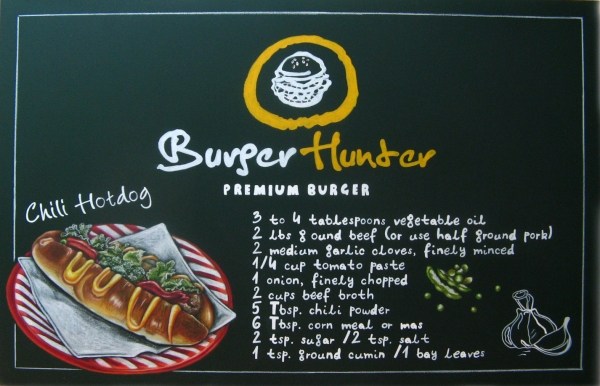 Burger Hunter
PREMIUM BURGER
Chili Hotdog
3 to 4 tablespoons vegetable oil
2 lbs g ound beef (or use half ground pork)
2 medium garlic cloves, finely minced
1/4 cup tomato paste
1 onion, finely chopped
2 cups beef broth
5 Tbsp. chili powder
6 Tbsp. corn meal or mas
2 tsp. sugar /2 tsp. salt
1 tsp. ground cumin /1 bay leaves